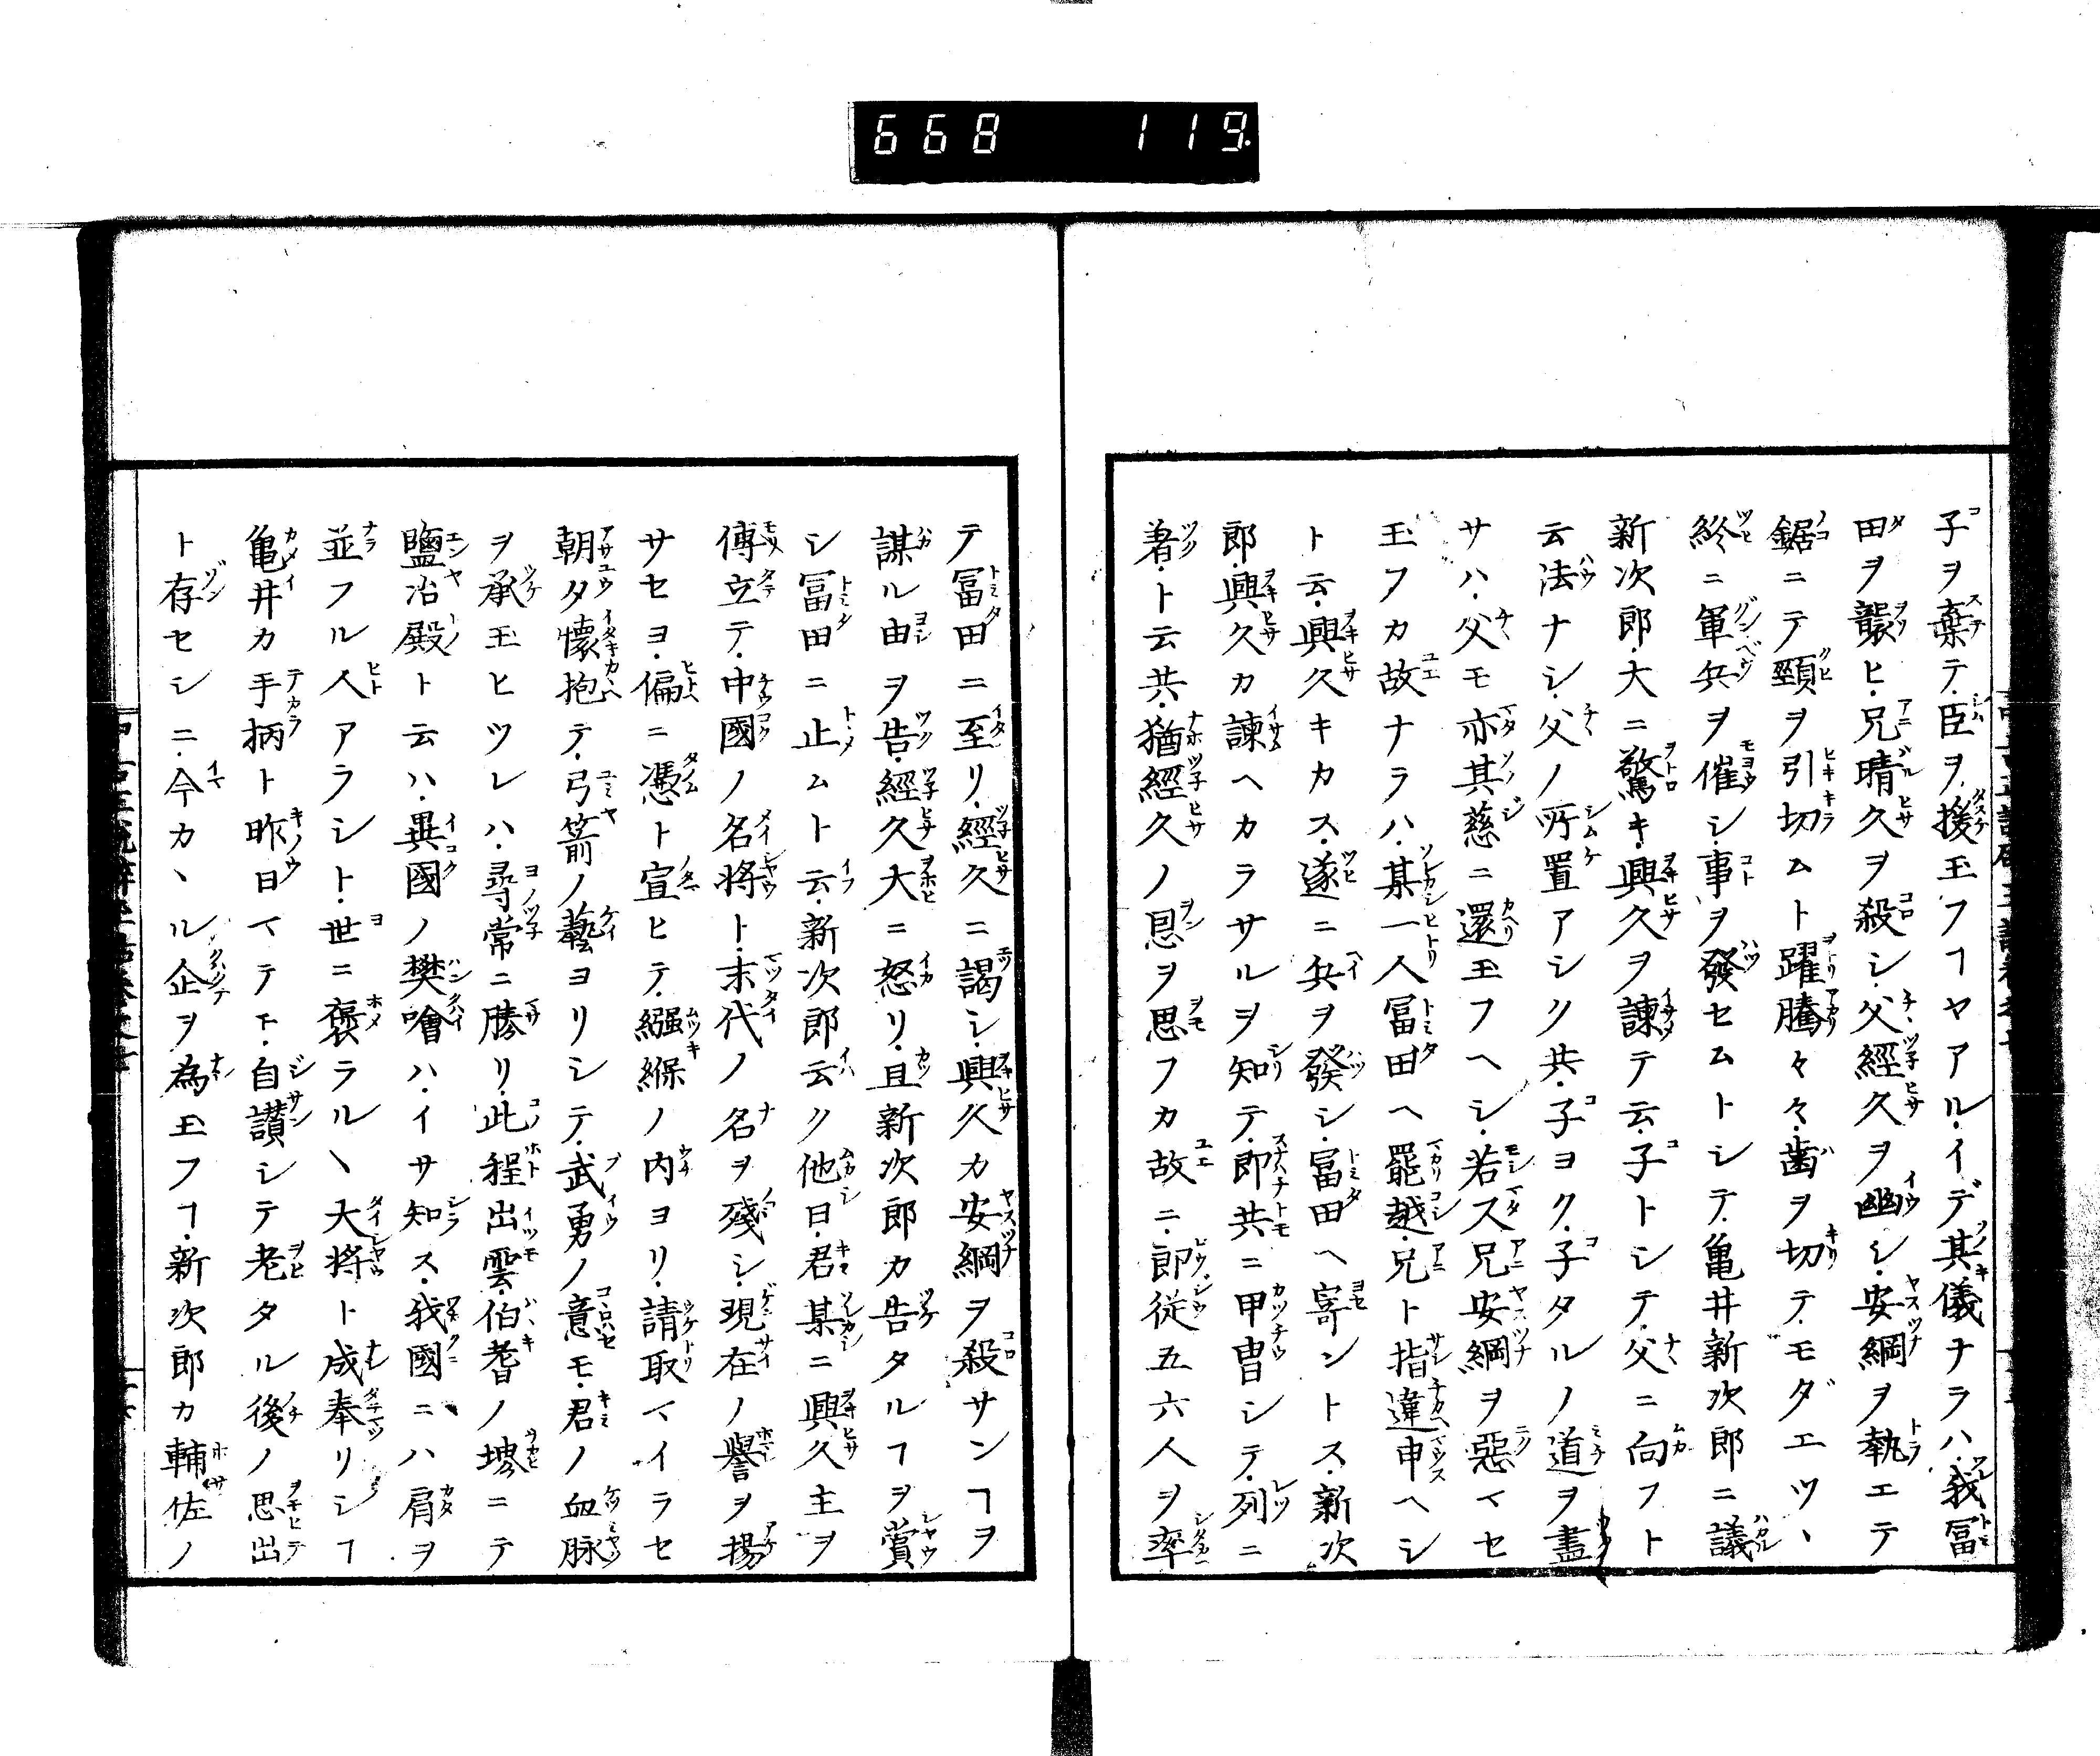 668 119.
子ヲ棄テ臣ヲ援玉フヿヤアル・イデ其儀ナラハ我冨
田ヲ襲ヒ・兄晴久ヲ殺シ・父經久ヲ幽シ・安綱ヲ執エテ
鋸ニテ頸ヲ引切ムト躍騰々々・歯ヲ切テ・モダエツヽ
終ニ軍兵ヲ催シ・事ヲ發セムトシテ・亀井新次郎ニ議
新次郎・大ニ驚キ・興久ヲ諫テ云・子トシテ・父ニ向フト
云法ナシ・父ノ所置アシク共・子ヨク・子タルノ道ヲ盡
サハ・父モ亦其慈ニ還玉フヘシ・若ス兄安綱ヲ惡マセ
玉フカ故ナラハ・某一人冨田ヘ罷越・兄ト指違申ヘシ
ト云・興久キカス・遂ニ兵ヲ發シ・冨田ヘ寄ントス・新次
郎・興久カ諫ヘカラサルヲ知テ・即共ニ甲冑シテ・列ニ
着・ト云共・猶經久ノ恩ヲ思フカ故ニ・即従五六人ヲ率
テ冨田ニ至リ・經久ニ謁シ・興久カ安綱ヲ殺サンヿヲ
謀ル由ヲ告・經久大ニ怒リ・且新次郎カ告タルヿヲ賞
シ冨田ニ止ムト云・新次郎云ク他日・君某ニ興久主ヲ
傅立テ・中國ノ名将ト・末代ノ名ヲ殘シ・現在ノ譽ヲ揚
サセヨ・偏ニ憑ト宣ヒテ・繦緥ノ内ヨリ・請取マイラセ
朝タ懐抱テ・弓箭ノ藝ヨリシテ・武勇ノ意モ・君ノ血脉
ヲ承玉ヒツレハ・尋常ニ勝リ・此程出雲・伯耆ノ堺ニテ
鹽冶殿ト云ハ・異國ノ樊噲ハ・イサ知ス・我國ニハ肩ヲ
並フル人アラシト・世ニ褒ラルヽ大将ト成奉リシヿ
亀井カ手柄ト昨日マテモ・自讃シテ老タル後ノ思出
ト存セシニ・今カヽル企ヲ為玉フヿ・新次郎カ輔佐ノ